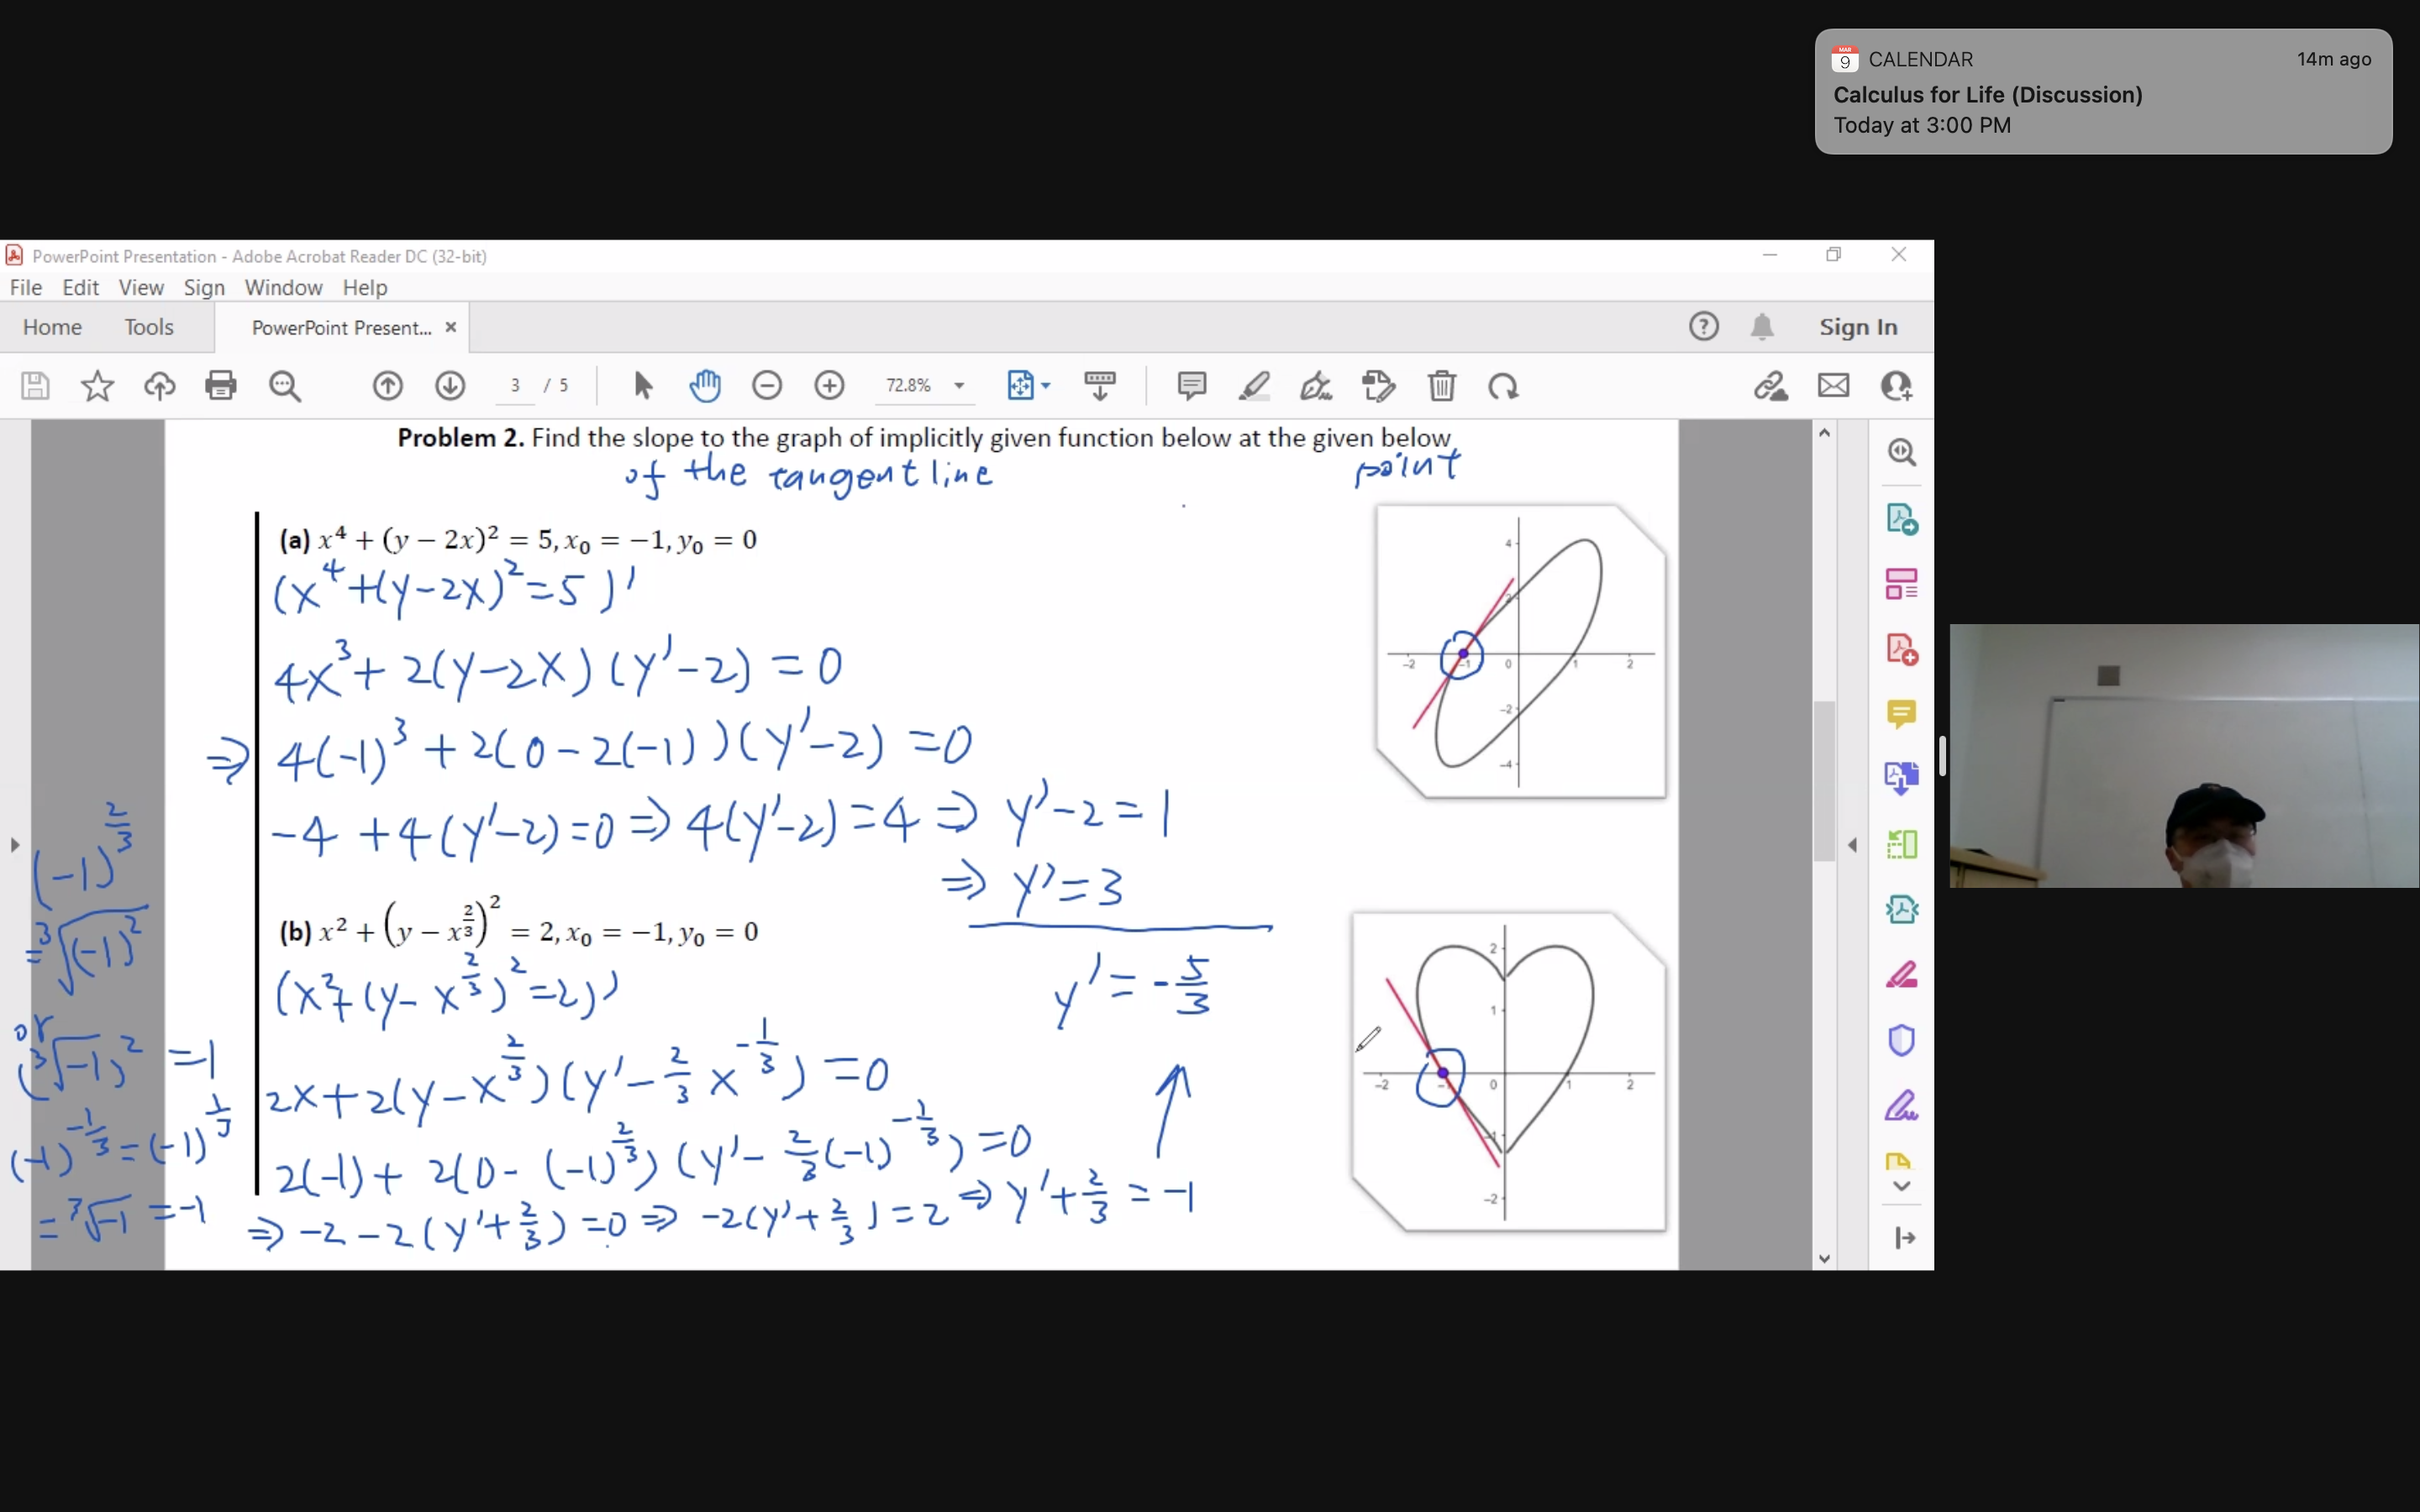 CALENDAR 14m ago
MAR 9
Calculus for Life (Discussion)
Today at 3:00 PM
PowerPoint Presentation - Adobe Acrobat Reader DC (32-bit)
File Edit View Sign Window Help
Home Tools PowerPoint Present... × Sign In
3 / 5 72.8%
Problem 2. Find the slope to the graph of implicitly given function below at the given below
of the tangent line point
(a) x⁴ + (y − 2x)² = 5, x₀ = −1, y₀ = 0
(x⁴+(y−2x)²=5)'
4x³ + 2(y−2x)(y'−2) = 0
⇒ 4(−1)³ + 2(0−2(−1))(y'−2) = 0
−4 + 4(y'−2)=0 ⇒ 4(y'−2)=4 ⇒ y'−2=1
⇒ y'=3
(b) x² + (y − x^(2/3))² = 2, x₀ = −1, y₀ = 0
(x²+(y−x^(2/3))²=2)'
y' = −5/3
2x+2(y−x^(2/3))(y'−2/3 x^(−1/3))=0
2(−1)+2(0−(−1)^(2/3))(y'−2/3(−1)^(−1/3))=0
⇒ −2−2(y'+2/3)=0 ⇒ −2(y'+2/3)=2 ⇒ y'+2/3=−1
(−1)^(2/3)
=³√(−1)²
or
(³√−1)² =1
(−1)^(−1/3)=(−1)^(1/3)
=³√−1 =−1
4
2
−2 −1 0 1 2
−2
−4
2
1
−2 −1 0 1 2
−1
−2